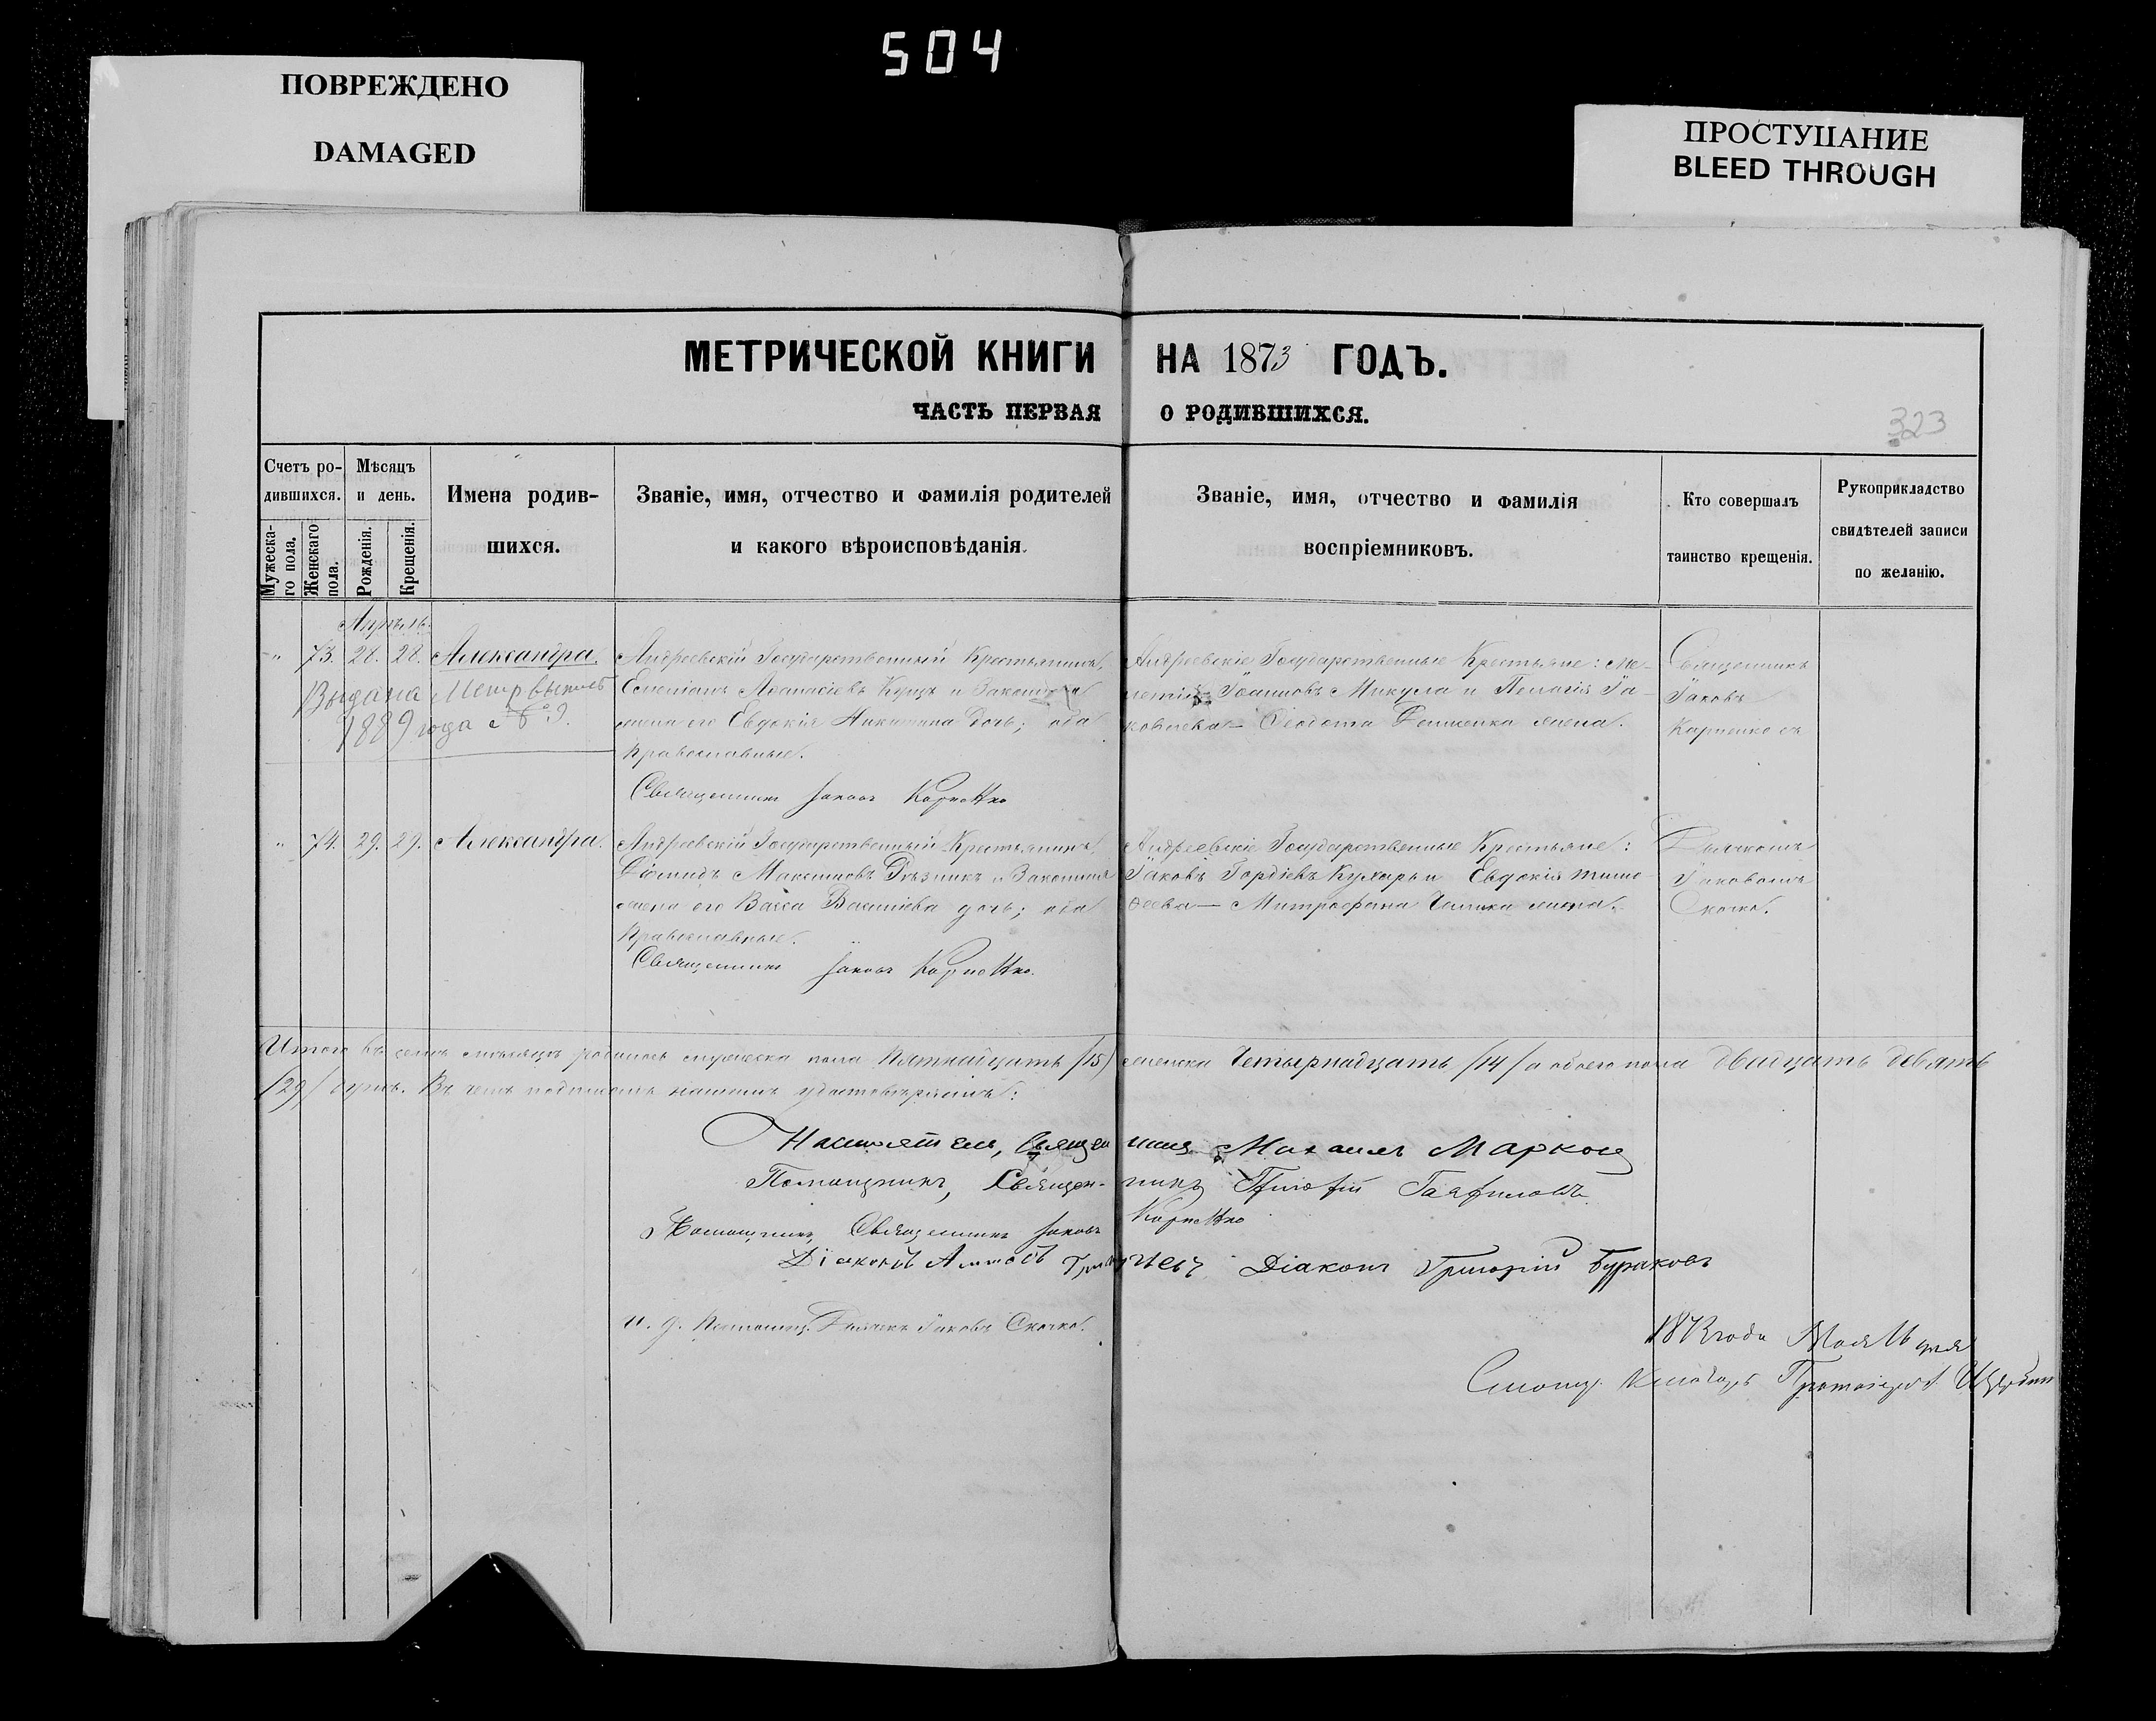 504
ПОВРЕЖДЕНО
DAMAGED
ПРОСТУПАНИЕ
BLEED THROUGH
МЕТРИЧЕСКОЙ КНИГИ НА 1873 ГОДЪ.
ЧАСТЬ ПЕРВАЯ О РОДИВШИХСЯ.
323
Счетъ ро-
дившихся.
Мужеска-
го пола.
Женскаго
пола.
Мѣсяцъ
и день.
Рожденія.
Крещенія.
Имена родив-
шихся.
Званіе, имя, отчество и фамилія родителей
и какого вѣроисповѣданія.
Званіе, имя, отчество и фамилія
воспріемниковъ.
Кто совершалъ
таинство крещенія.
Рукоприкладство
свидѣтелей записи
по желанію.
Апрѣль
" 73. 28. 28. Александра.
Выдана
1889 года № 9.
Андреевскій Государственный Крестьянинъ,
Емеліанъ Аѳанасіевъ и Законная
жена его Евдокія Никитина дочь; оба
православные.
Священникъ Іаковъ
Андреевскіе Государственные Крестьяне: Ме-
Іоанновъ Микула и Пелагія Іа-
Ѳеодота жена.
Священникъ
Іаковъ
" 74. 29. 29. Александра.
Андреевскій Государственный Крестьянинъ,
Діомидъ Максимовъ Рѣзникъ и Законная
жена его Васса дочь; оба
православные.
Священникъ Іаковъ
Андреевскіе Государственные Крестьяне:
Іаковъ Гордіевъ Кухарь и Евдокія Тимо-
ѳеева — Митрофана жена.
Іаковомъ
Итого въ семъ мѣсяцѣ родилось мужеска пола пятнадцать /15/ женска четырнадцать /14/ а обоего пола двадцать девять
/29/ душъ. Въ чемъ подписомъ нашимъ удостовѣряемъ:
Настоятель, Священникъ Михаилъ
Помощникъ, Священникъ
Помощникъ, Священникъ Іаковъ
Діаконъ Діаконъ Григорій Бураковъ
И. д. Іаковъ
1873 года Мая 16 дня
Протоіерей